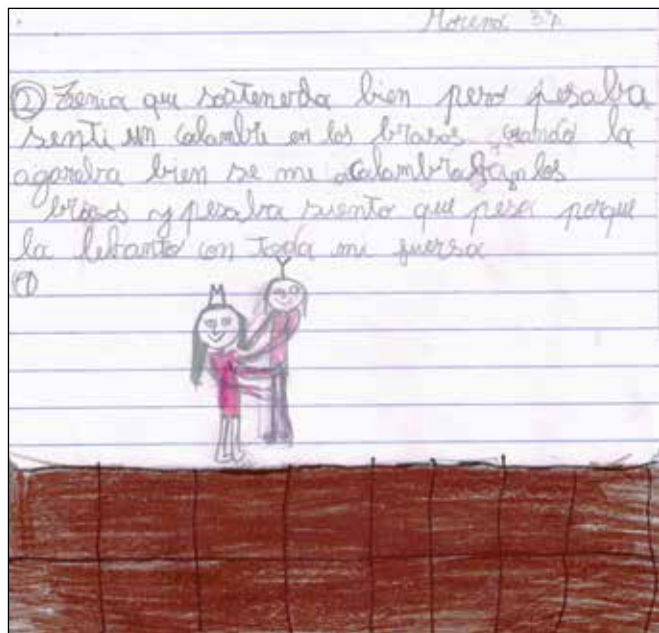 Morena 3ºA
② Tenia que sostenerda bien pero pesaba
senti un calambre en los brasos cuando la
agaraba bien se me acalambraban los
brasos y pesaba siento que pesa porque
la lebanto con toda mi fuersa
①
M Y